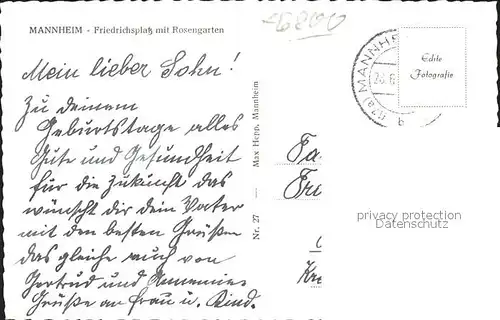 MANNHEIM - Friedrichsplatz mit Rosengarten
Mein lieber Sohn!
Zu deinem
Geburtstage alles
Gute und Gesundheit
für die Zukunft das
wünscht dir dein Vater
mit den besten Grüßen
das gleiche auch von
Gertrud und Annemie
Grüße an Frau u. Kind.
Nr. 27 — Max Hepp, Mannheim
MANNHE
Echte
Fotografie
privacy protection
Datenschutz
Fa
Fri
Kre